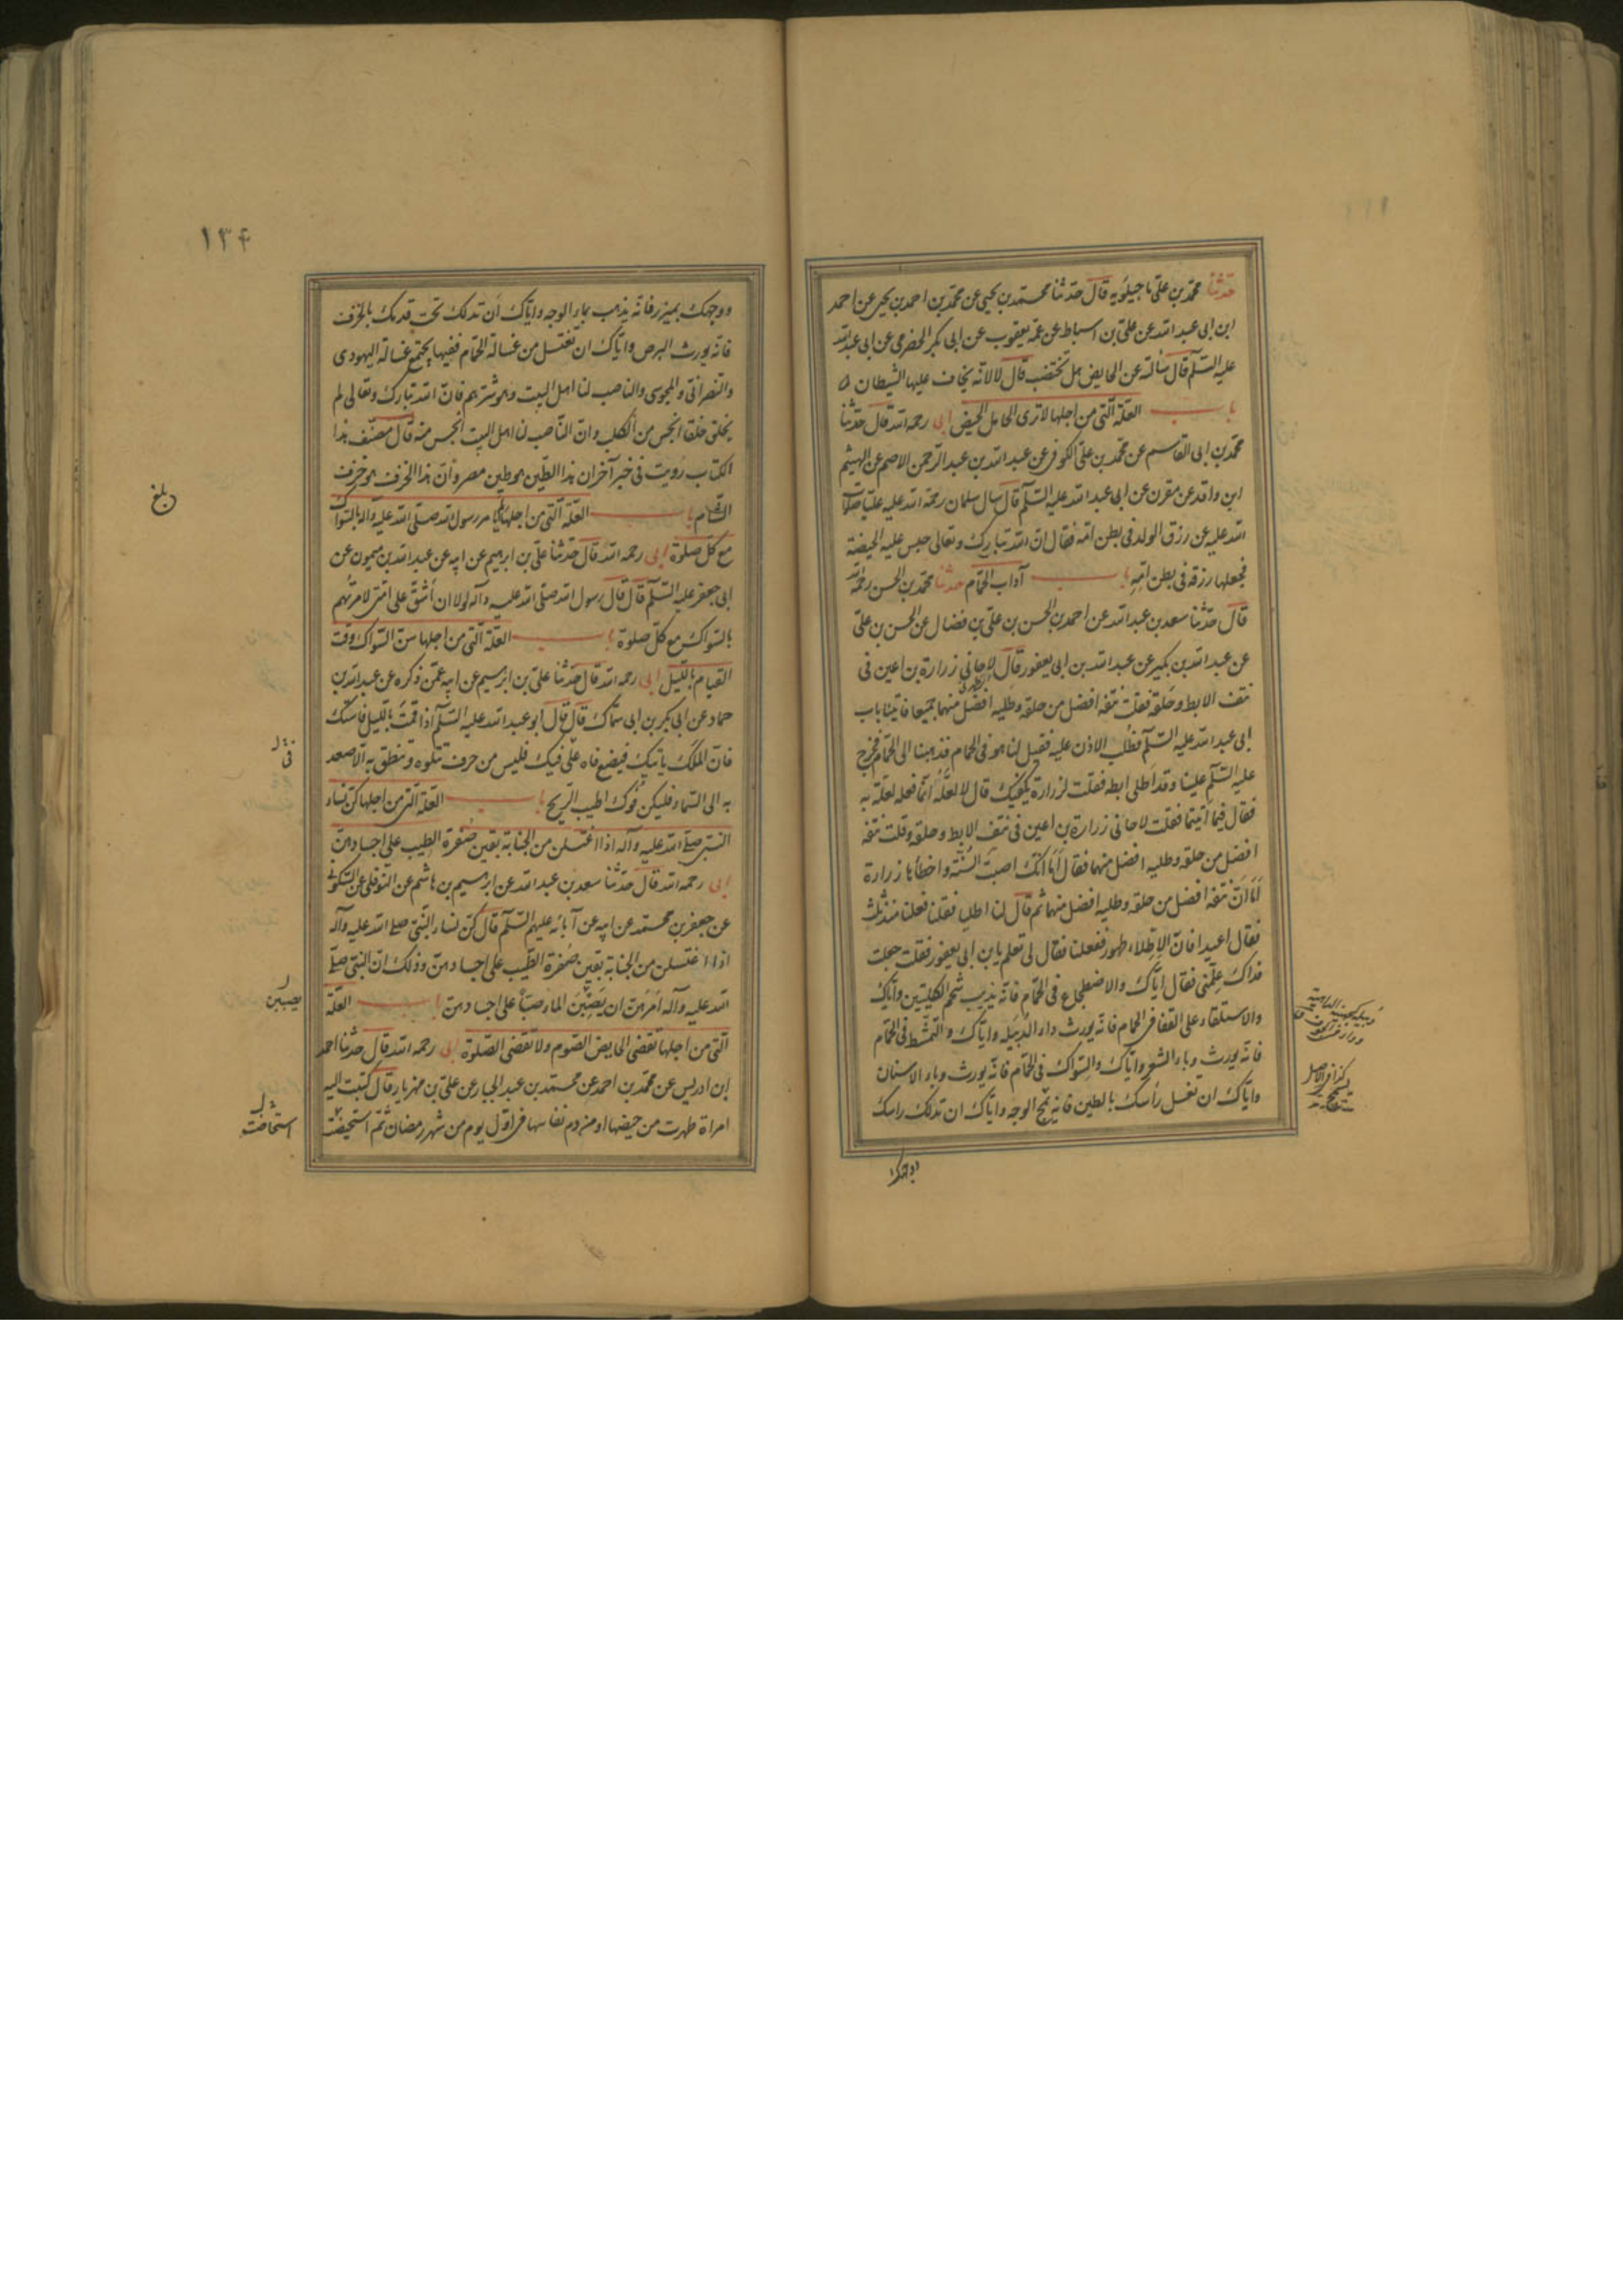 حدثنا محمد بن علي ماجيلويه قال حدثنا محمد بن يحيى عن محمد بن احمد بن يحيى عن احمد
ابن ابي عبد الله عن علي بن اسباط عن عمه يعقوب عن ابي بكر الحضرمي عن ابي عبد الله
عليه السلم قال سألته عن الحايض هل تختضب قال لا لانه يخاف عليها الشيطان
باب العلة التي من اجلها لا ترى الحامل الحيض ابي رحمه الله قال حدثنا
محمد بن ابي القاسم عن محمد بن علي الكوفي عن عبد الله بن عبد الرحمن الاصم عن الهيثم
ابن واقد عن مقرن عن ابي عبد الله عليه السلم قال سال سلمان رحمة الله عليه عليا صلوات
الله عليه عن رزق الولد في بطن امه فقال ان الله تبارك وتعالى حبس عليه الحيضة
فجعلها رزقه في بطن امه باب آداب الحمام حدثنا محمد بن الحسن رحمه الله
قال حدثنا سعد بن عبد الله عن احمد بن الحسن بن علي بن فضال عن الحسن بن علي
عن عبد الله بن بكير عن عبد الله بن ابي يعفور قال لاحاني زرارة بن اعين في
نتف الابط وحلقه فقلت نتفه افضل من حلقه وطليه افضل منهما جميعا فاتينا باب
ابي عبد الله عليه السلم فطلب الاذن عليه فقيل لنا هو في الحمام فذهبنا الى الحمام فخرج
عليه السلم علينا وقد اطلى ابطه فقلت لزرارة يكفيك قال لا لعله انما فعله لعلة به
فقال فيما اتيتما فقلت لاحاني زرارة بن اعين في نتف الابط وحلقه وقلت نتفه
افضل من حلقه وطليه افضل منهما فقال اما انك اصبت السنة واخطأها زرارة
اما ان نتفه افضل من حلقه وطليه افضل منهما ثم قال لنا اطليا فقلنا فعلنا منذ ثلث
فقال اعيدا فان الاطلاء طهور ففعلنا فقال لي تعلم يا بن ابي يعفور فقلت جعلت
فداك علمني فقال اياك والاضطجاع في الحمام فانه يذيب شحم الكليتين واياك
والاستلقاء على القفا في الحمام فانه يورث داء الدبيلة واياك والتمشط في الحمام
فانه يورث وباء الشعر واياك والسواك في الحمام فانه يورث وباء الاسنان
واياك ان تغسل رأسك بالطين فانه يسمج الوجه واياك ان تدلك راسك
كذا في الاصل
يسمج
١٣۴
ووجهك بميزر فانه يذهب بماء الوجه واياك ان تدلك تحت قدمك بالخزف
فانه يورث البرص واياك ان تغتسل من غسالة الحمام ففيها يجتمع غسالة اليهودي
والنصراني والمجوسي والناصب لنا اهل البيت وهو شرهم فان الله تبارك وتعالى لم
يخلق خلقا انجس من الكلب وان الناصب لنا اهل البيت انجس منه قال مصنف هذا
الكتاب رويت في خبر آخر ان هذا الطين هو طين مصر وان هذا الخزف هو خزف
الشام باب العلة التي من اجلها لم يامر رسول الله صلى الله عليه وآله بالسواك
مع كل صلوة ابي رحمه الله قال حدثنا علي بن ابرهيم عن ابيه عن عبد الله بن ميمون عن
ابي جعفر عليه السلم قال قال رسول الله صلى الله عليه وآله لولا ان اشق على امتي لامرتهم
بالسواك مع كل صلوة باب العلة التي من اجلها سن السواك وقت
القيام بالليل ابي رحمه الله قال حدثنا علي بن ابرهيم عن ابيه عمن ذكره عن عبد الله بن
حماد عن ابي بكر بن ابي سماك قال قال ابو عبد الله عليه السلم اذا قمت بالليل فاستك
فان الملك ياتيك فيضع فاه على فيك فليس من حرف تتلوه وتنطق به الا صعد
به الى السماء فليكن فوك اطيب الريح باب العلة التي من اجلها كن نساء
النبي صلى الله عليه وآله اذا اغتسلن من الجنابة بقين صفرة الطيب على اجسادهن
ابي رحمه الله قال حدثنا سعد بن عبد الله عن ابرهيم بن هاشم عن النوفلي عن السكوني
عن جعفر بن محمد عن ابيه عن آبائه عليهم السلم قال كن نساء النبي صلى الله عليه وآله
اذا اغتسلن من الجنابة بقين صفرة الطيب على اجسادهن وذلك ان النبي صلى
الله عليه وآله امرهن ان يصببن الماء صبا على اجسادهن باب العلة
التي من اجلها تقضي الحايض الصوم ولا تقضي الصلوة ابي رحمه الله قال حدثنا احمد
ابن ادريس عن محمد بن احمد عن محمد بن عبد الجبار عن علي بن مهزيار قال كتبت اليه
امراة طهرت من حيضها او من دم نفاسها في اول يوم من شهر رمضان ثم استحيضت
بلغ
في
يصببن
استحاضت